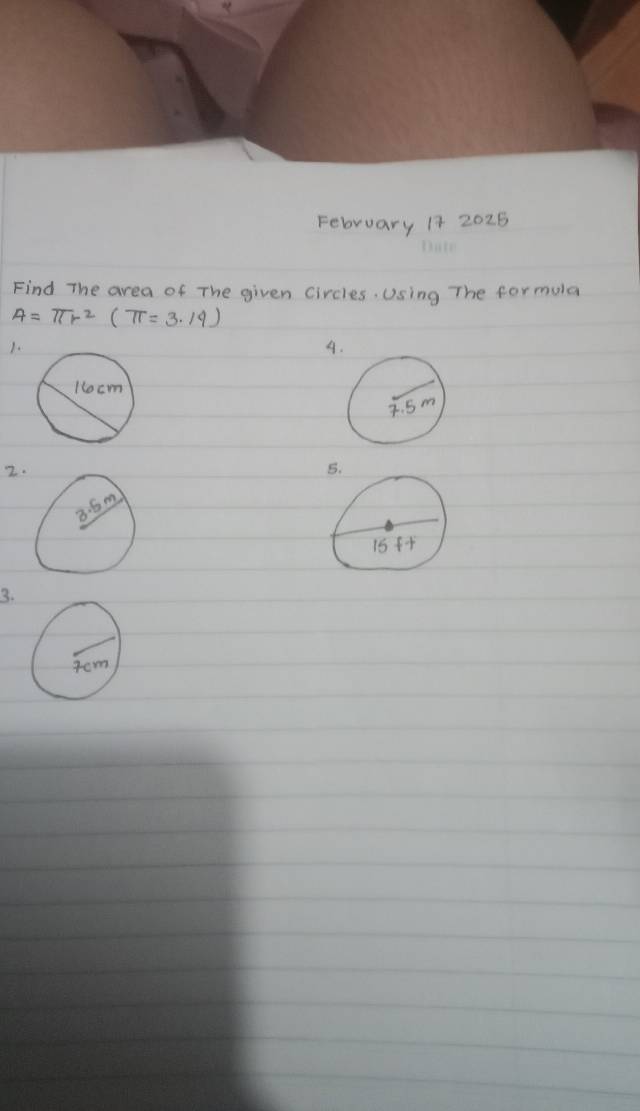 February 17 2025
Date
Find The area of The given Circles. Using The formula
A = πr² (π = 3.14)
1.
16cm
4.
7.5 m
2.
3.5m
5.
15 ft
3.
7cm